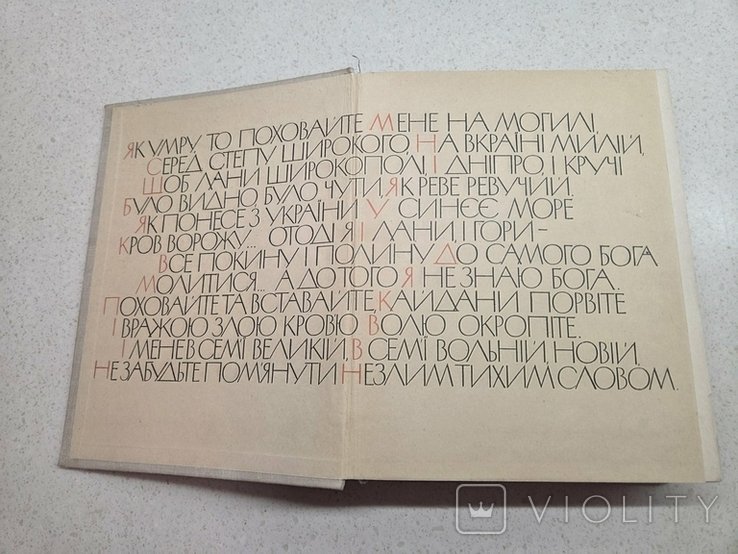 ЯК УМРУ, ТО ПОХОВАЙТЕ МЕНЕ НА МОГИЛІ,
СЕРЕД СТЕПУ ШИРОКОГО, НА ВКРАЇНІ МИЛІЙ,
ЩОБ ЛАНИ ШИРОКОПОЛІ, І ДНІПРО, І КРУЧІ
БУЛО ВИДНО, БУЛО ЧУТИ, ЯК РЕВЕ РЕВУЧИЙ.
ЯК ПОНЕСЕ З УКРАЇНИ У СИНЄЄ МОРЕ
КРОВ ВОРОЖУ... ОТОДІ Я І ЛАНИ І ГОРИ—
ВСЕ ПОКИНУ І ПОЛИНУ ДО САМОГО БОГА
МОЛИТИСЯ... А ДО ТОГО Я НЕ ЗНАЮ БОГА.
ПОХОВАЙТЕ ТА ВСТАВАЙТЕ, КАЙДАНИ ПОРВІТЕ
І ВРАЖОЮ ЗЛОЮ КРОВ'Ю ВОЛЮ ОКРОПІТЕ.
І МЕНЕ В СЕМ'Ї ВЕЛИКІЙ, В СЕМ'Ї ВОЛЬНІЙ, НОВІЙ,
НЕ ЗАБУДЬТЕ ПОМ'ЯНУТИ НЕЗЛИМ ТИХИМ СЛОВОМ.
VIOLITY